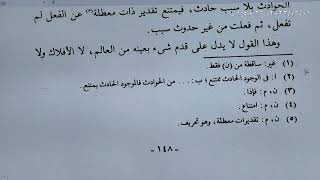 الحوادث بلا سبب حادث، فيمتنع تقدير ذات معطلة(٥) عن الفعل لم
تفعل، ثم فعلت من غير حدوث سبب.
وهذا القول لا يدل على قدم شيء بعينه من العالم، لا الأفلاك ولا
(١) غير: ساقطة من (ن) فقط.
(٢) أ: في الوجود الحادث ممتنع؛ ب: ... من الحوادث فالموجود الحادث يمتنع.
(٣) ن، م: فإذا.
(٤) ن، م: امتناع.
(٥) ن، م: تقديرات معطلة، وهو تحريف.
- ١٤٨ -